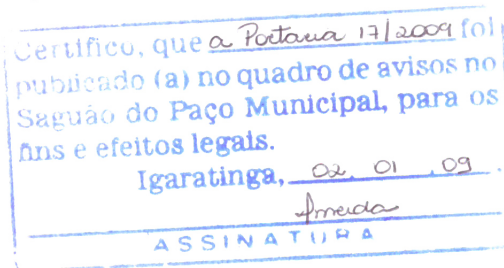 Certifico, que a Portaria 17/2009 foi
publicado (a) no quadro de avisos no
Saguão do Paço Municipal, para os
fins e efeitos legais.
Igaratinga, 02, 01, 09.
Almeida
ASSINATURA